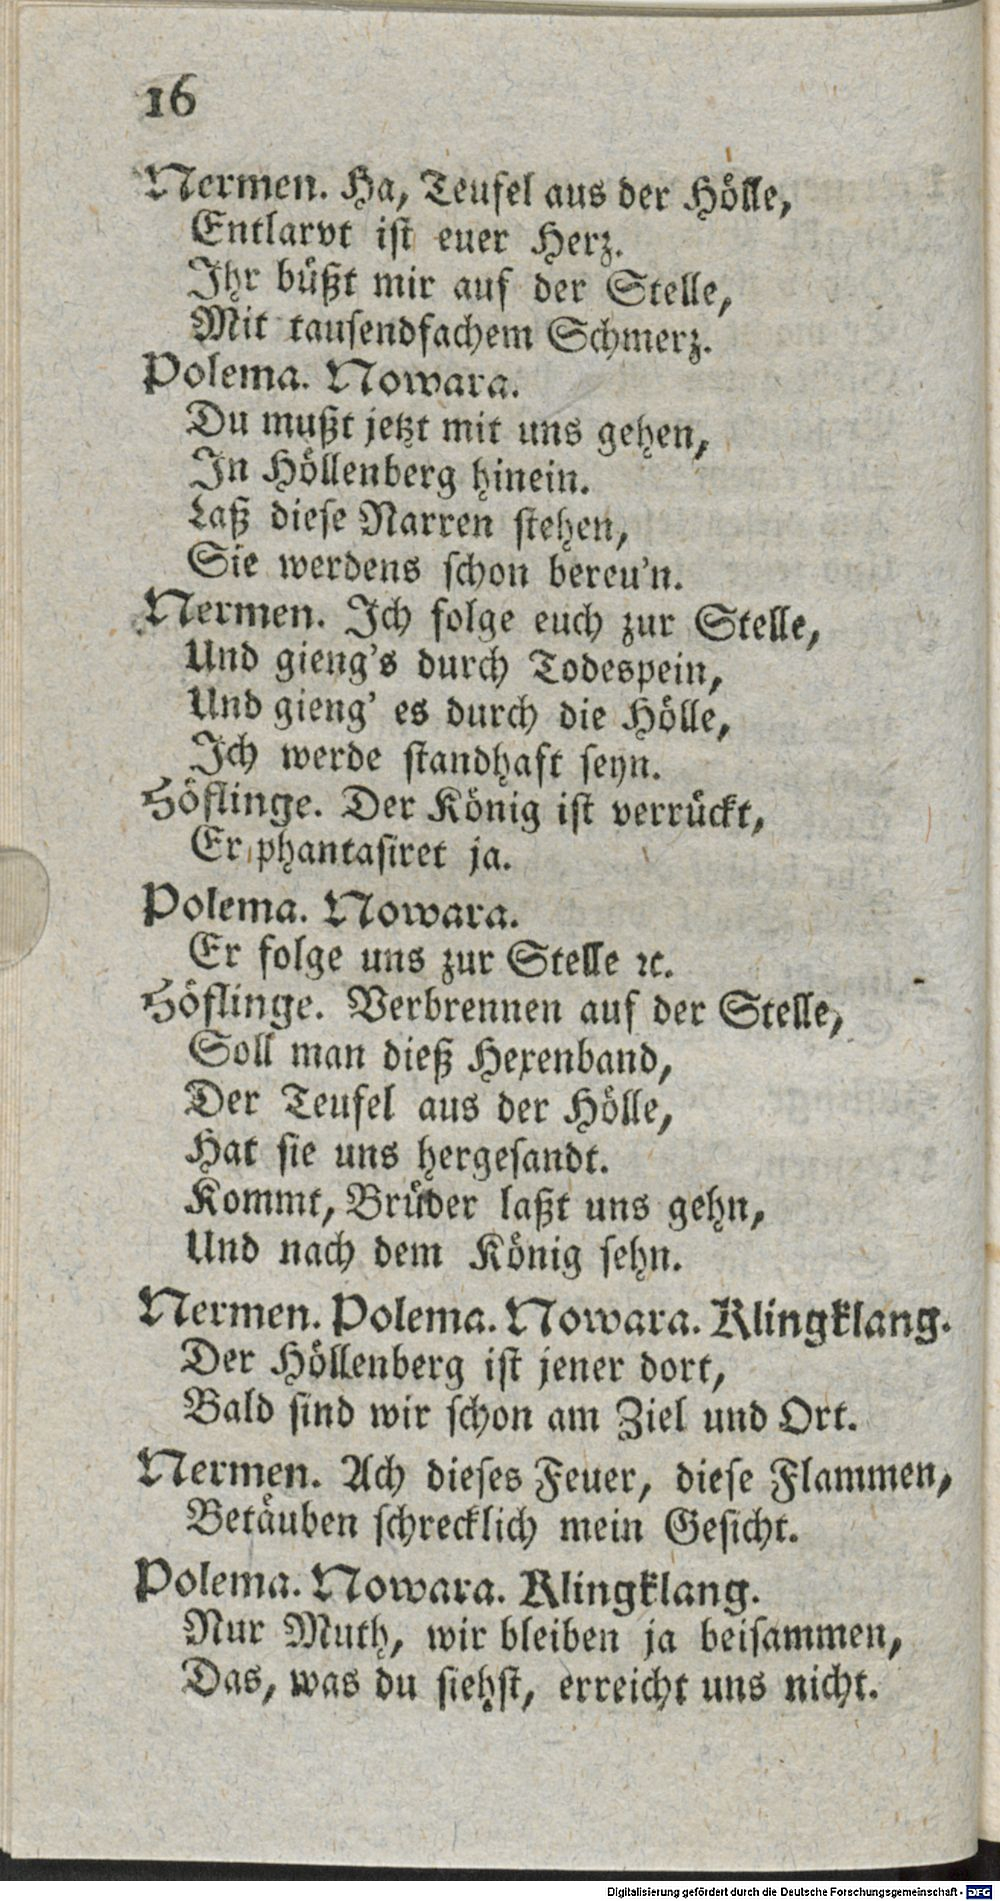 16
Nermen. Ha, Teufel aus der Hölle,
Entlarvt ist euer Herz.
Ihr büßt mir auf der Stelle,
Mit tausendfachem Schmerz.
Polema. Nowara.
Du mußt jetzt mit uns gehen,
In Höllenberg hinein.
Laß diese Narren stehen,
Sie werdens schon bereu'n.
Nermen. Ich folge euch zur Stelle,
Und gieng's durch Todespein,
Und gieng' es durch die Hölle,
Ich werde standhaft seyn.
Höflinge. Der König ist verrückt,
Er phantasiret ja.
Polema. Nowara.
Er folge uns zur Stelle ꝛc.
Höflinge. Verbrennen auf der Stelle,
Soll man dieß Hexenband,
Der Teufel aus der Hölle,
Hat sie uns hergesandt.
Kommt, Brüder laßt uns gehn,
Und nach dem König sehn.
Nermen. Polema. Nowara. Klingklang.
Der Höllenberg ist jener dort,
Bald sind wir schon am Ziel und Ort.
Nermen. Ach dieses Feuer, diese Flammen,
Betäuben schrecklich mein Gesicht.
Polema. Nowara. Klingklang.
Nur Muth, wir bleiben ja beisammen,
Das, was du siehst, erreicht uns nicht.
Digitalisierung gefördert durch die Deutsche Forschungsgemeinschaft - DFG